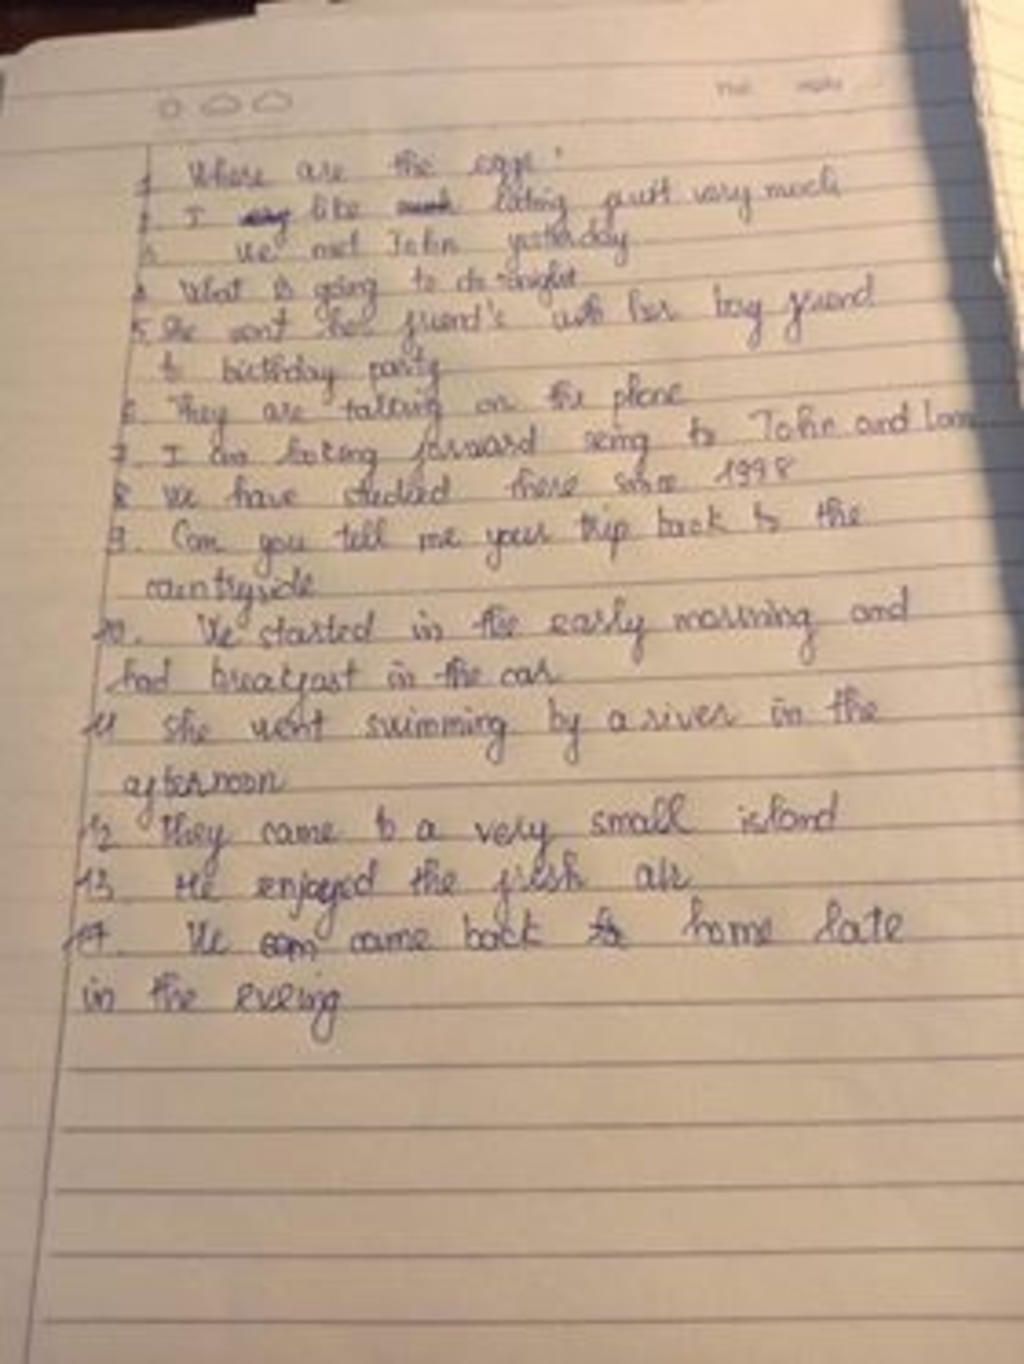 1 Where are the eggs?
2. I like eating fruit very much
3. We met John yesterday
4 What is going to do tonight
5. She went her friend's with her boy friend
to birthday party
6. They are talking on the phone
7. I am looking forward seing to John and
8 We have studied there since 1998
9. Can you tell me your trip back to the
countryside
10. We started in the early morning and
had breakfast in the car
11 She went swimming by a river in the
afternoon
12 They came to a very small island
13. He enjoyed the fresh air
14. We came back home late
in the eveing